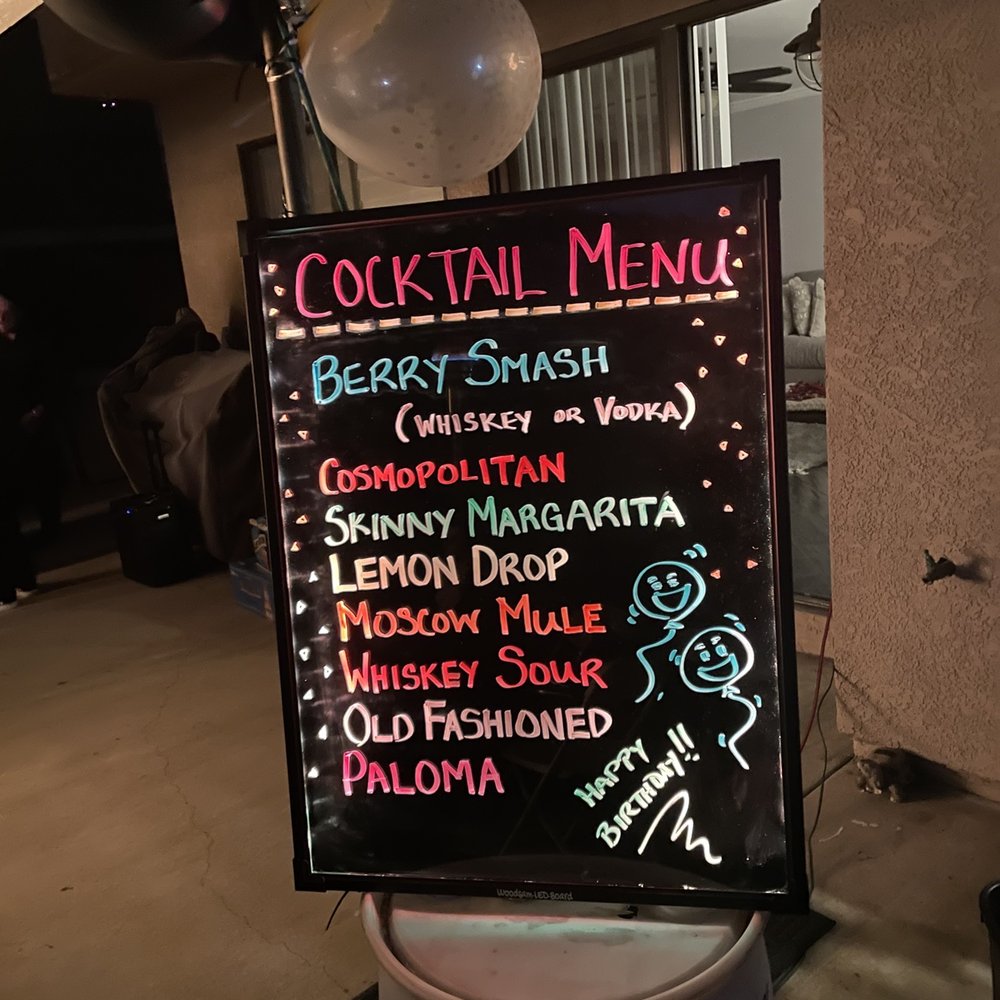 COCKTAIL MENU
BERRY SMASH
(WHISKEY OR VODKA)
COSMOPOLITAN
SKINNY MARGARITA
LEMON DROP
MOSCOW MULE
WHISKEY SOUR
OLD FASHIONED
PALOMA
HAPPY
BIRTHDAY!!
Woodsam LED Board